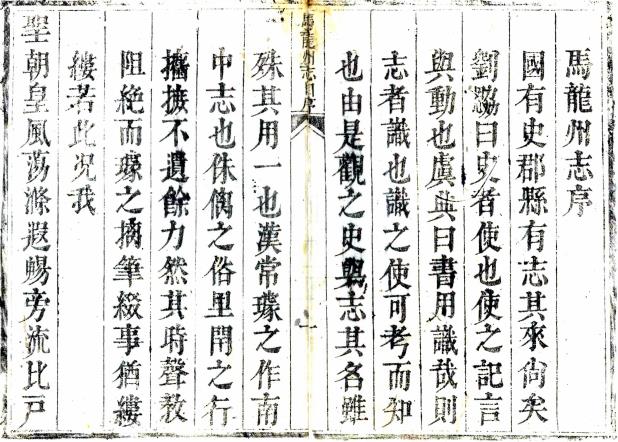 馬龍州志序
國有史郡縣有志其來尙矣
劉勰曰史者使也使之記言
與動也虞典曰書用識哉則
志者識也識之使可考而知
也由是觀之史與志其名雖
馬龍州志 序
殊其用一也漢常璩之作南
中志也侏㒧之俗里閈之行
攟摭不遺餘力然其時聲敎
阻絶而璩之摛筆綴事猶縷
縷若此況我
聖朝皇風蕩滌遐暢旁流比戸